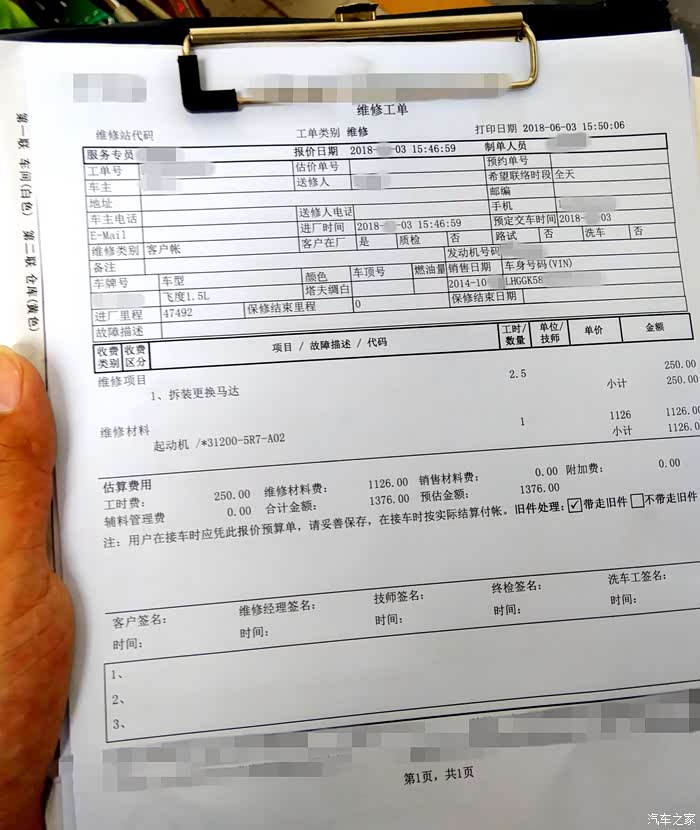 维修工单
维修站代码 工单类别 维修 打印日期 2018-06-03 15:50:06
服务专员 报价日期 2018- -03 15:46:59 制单人员
工单号 估价单号 预约单号
车主 送修人 希望联络时段 全天
地址 邮编
车主电话 送修人电话 手机
E-Mail 进厂时间 2018- -03 15:46:59 预定交车时间 2018- -03
维修类别 客户帐 客户在厂 是 质检 否 路试 否 洗车 否
备注 发动机号码
车牌号 车型 颜色 车项号 燃油量 销售日期 车身号码(VIN)
飞度1.5L 塔夫绸白 2014-10 LHGGK58
进厂里程 47492 保修结束里程 0 保修结束日期
故障描述
收费类别 收费区分 项目 / 故障描述 / 代码 工时/数量 单位/技师 单价 金额
维修项目
1、拆装更换马达 2.5 250.00
小计 250.00
维修材料
起动机 /*31200-5R7-A02 1 1126 1126.00
小计 1126.0
估算费用
工时费: 250.00 维修材料费: 1126.00 销售材料费: 0.00 附加费: 0.00
辅料管理费 0.00 合计金额: 1376.00 预估金额: 1376.00
注: 用户在接车时应凭此报价预算单，请妥善保存，在接车时按实际结算付帐。旧件处理: ☑带走旧件 □不带走旧件
客户签名: 维修经理签名: 技师签名: 终检签名: 洗车工签名:
时间: 时间: 时间: 时间: 时间:
1、
2、
3、
第1页，共1页
第一联 车间(白色) 第二联 仓库(黄色)
汽车之家